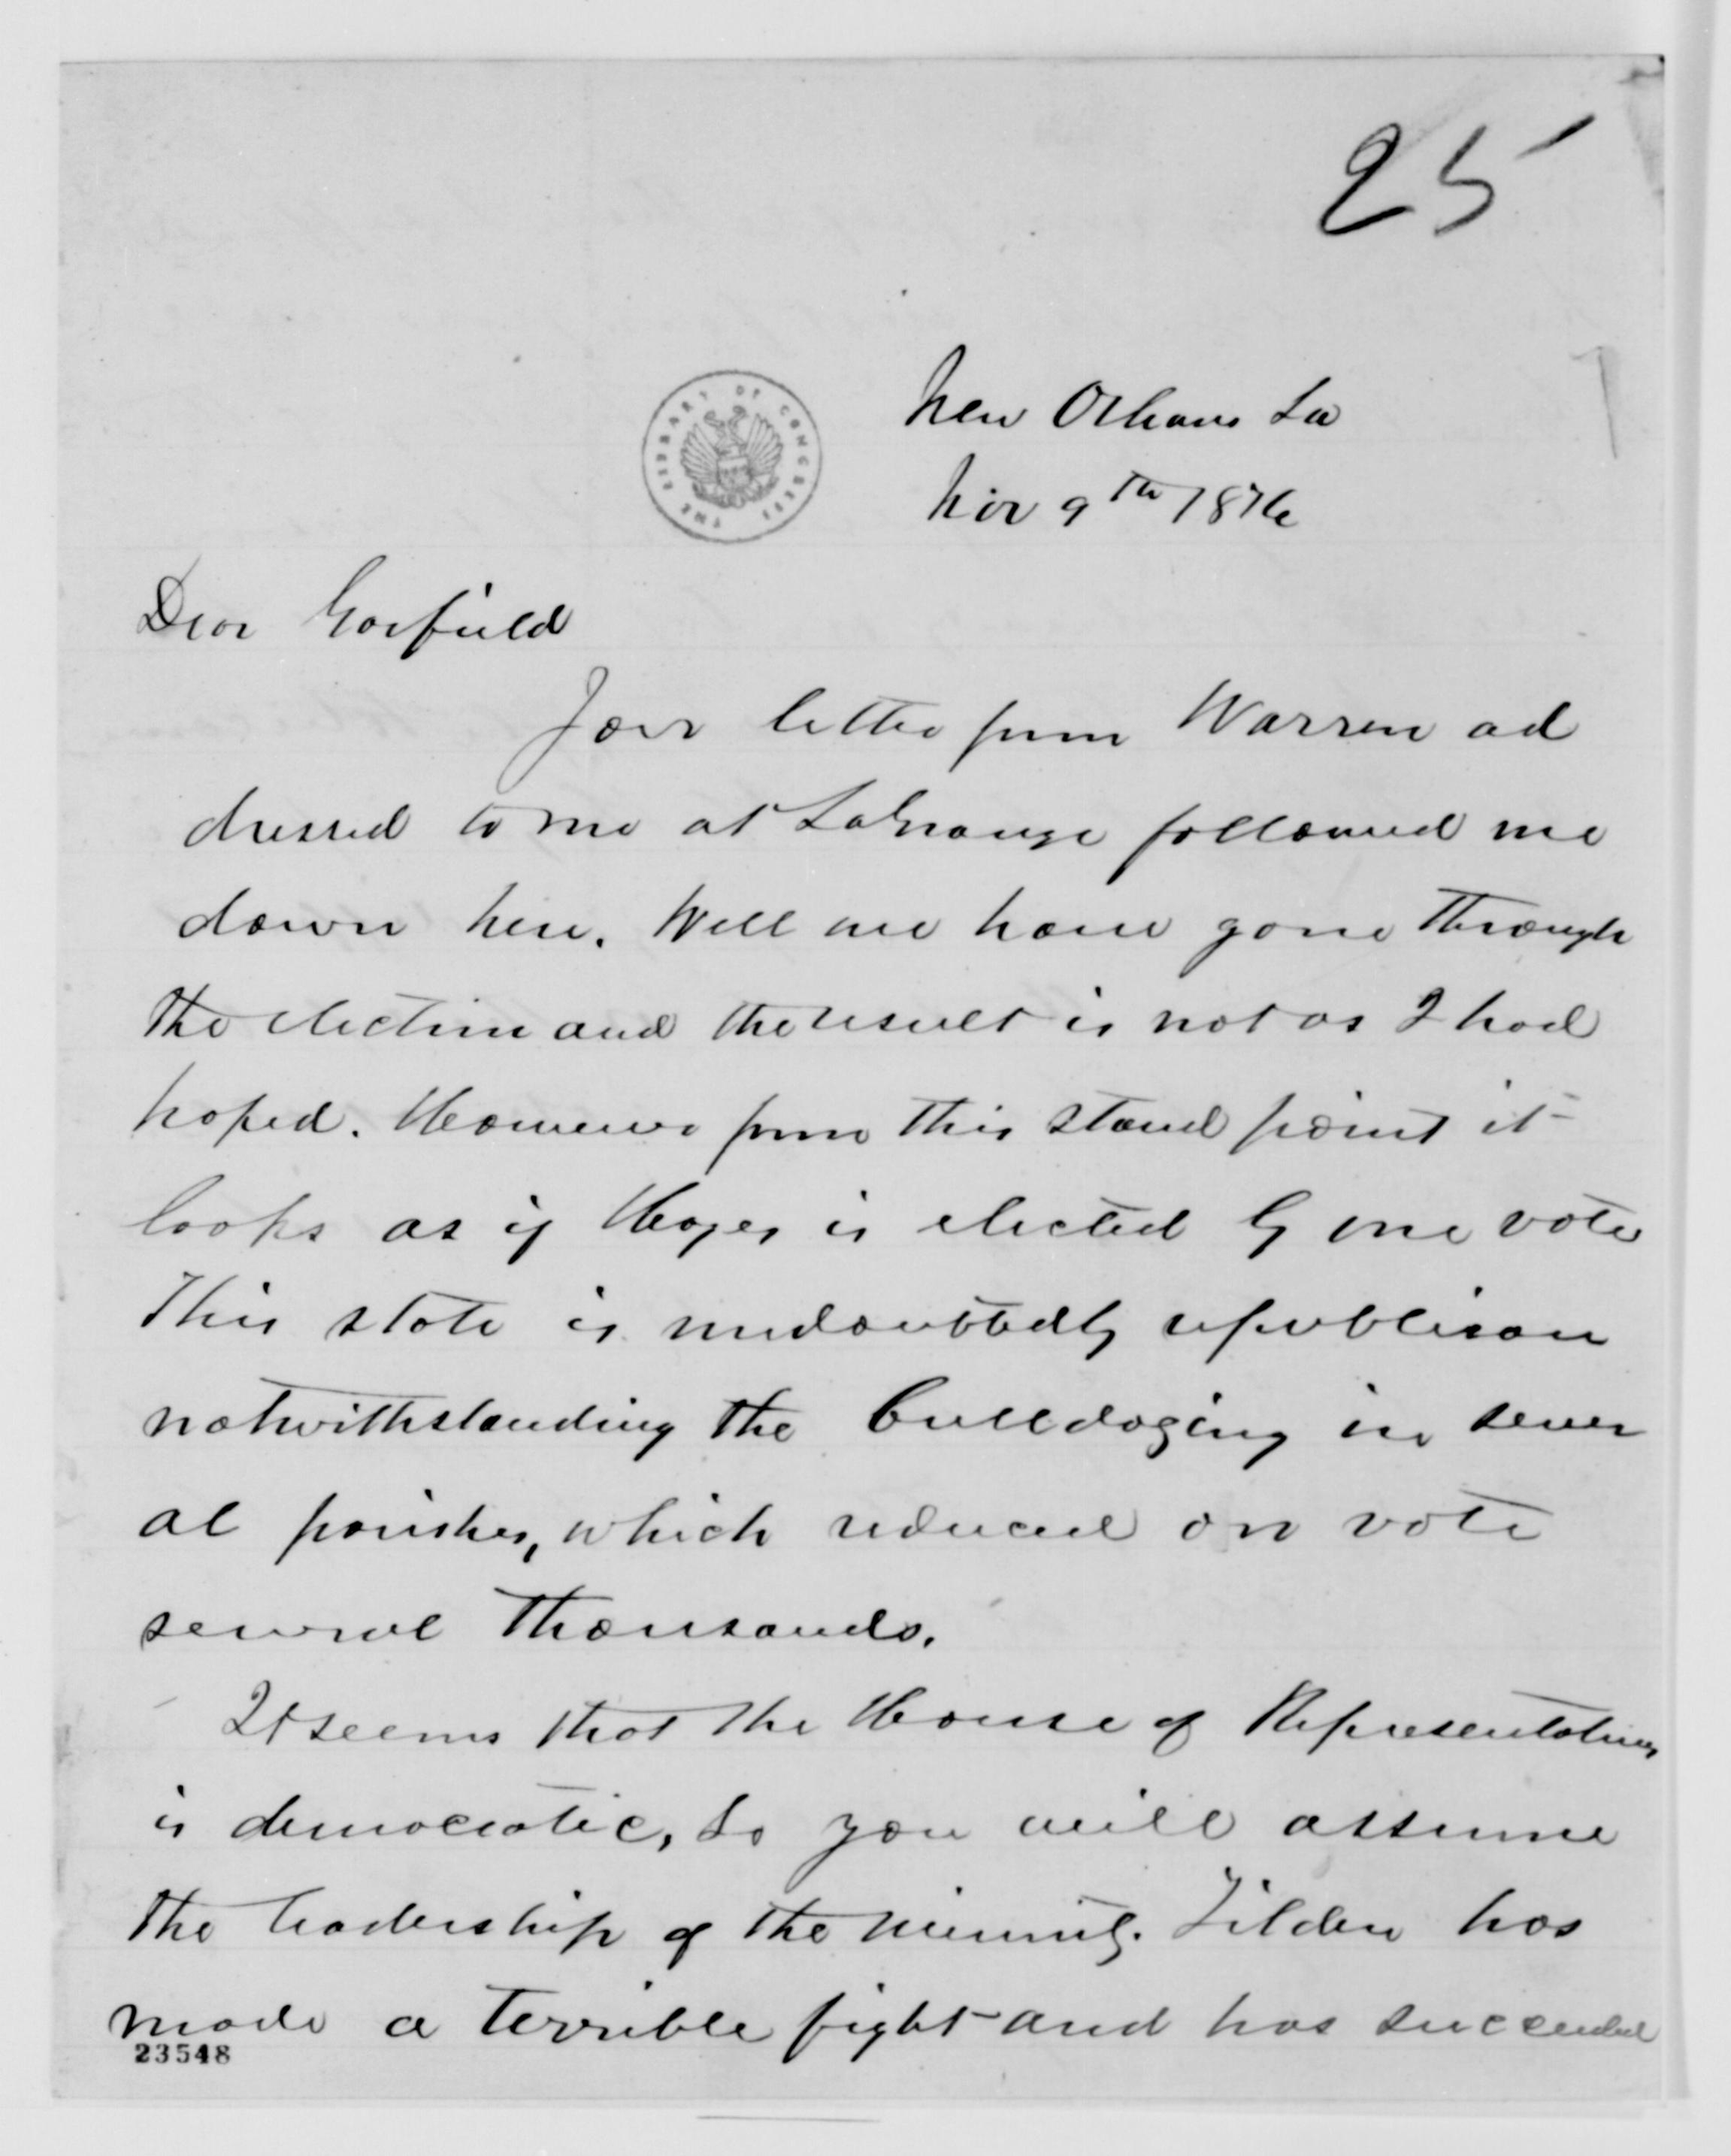 25
THE LIBRARY OF CONGRESS
New Orleans La
Nov 9th 1876
Dear Garfield
Your letter from Warren ad
dressed to me at LaGrange followed me
down here. Well we have gone through
the election and the result is not as I had
hoped. However from this stand point it
looks as if Hayes is elected by one vote
This state is undoubtedly republican
notwithstanding the Bulldoging in sever
al parishes, which reduced our vote
several thousands.
It seems that the House of Representatives
is democratic, so you will assume
the leadership of the minority. Tilden has
made a terrible fight and has succeeded
23548